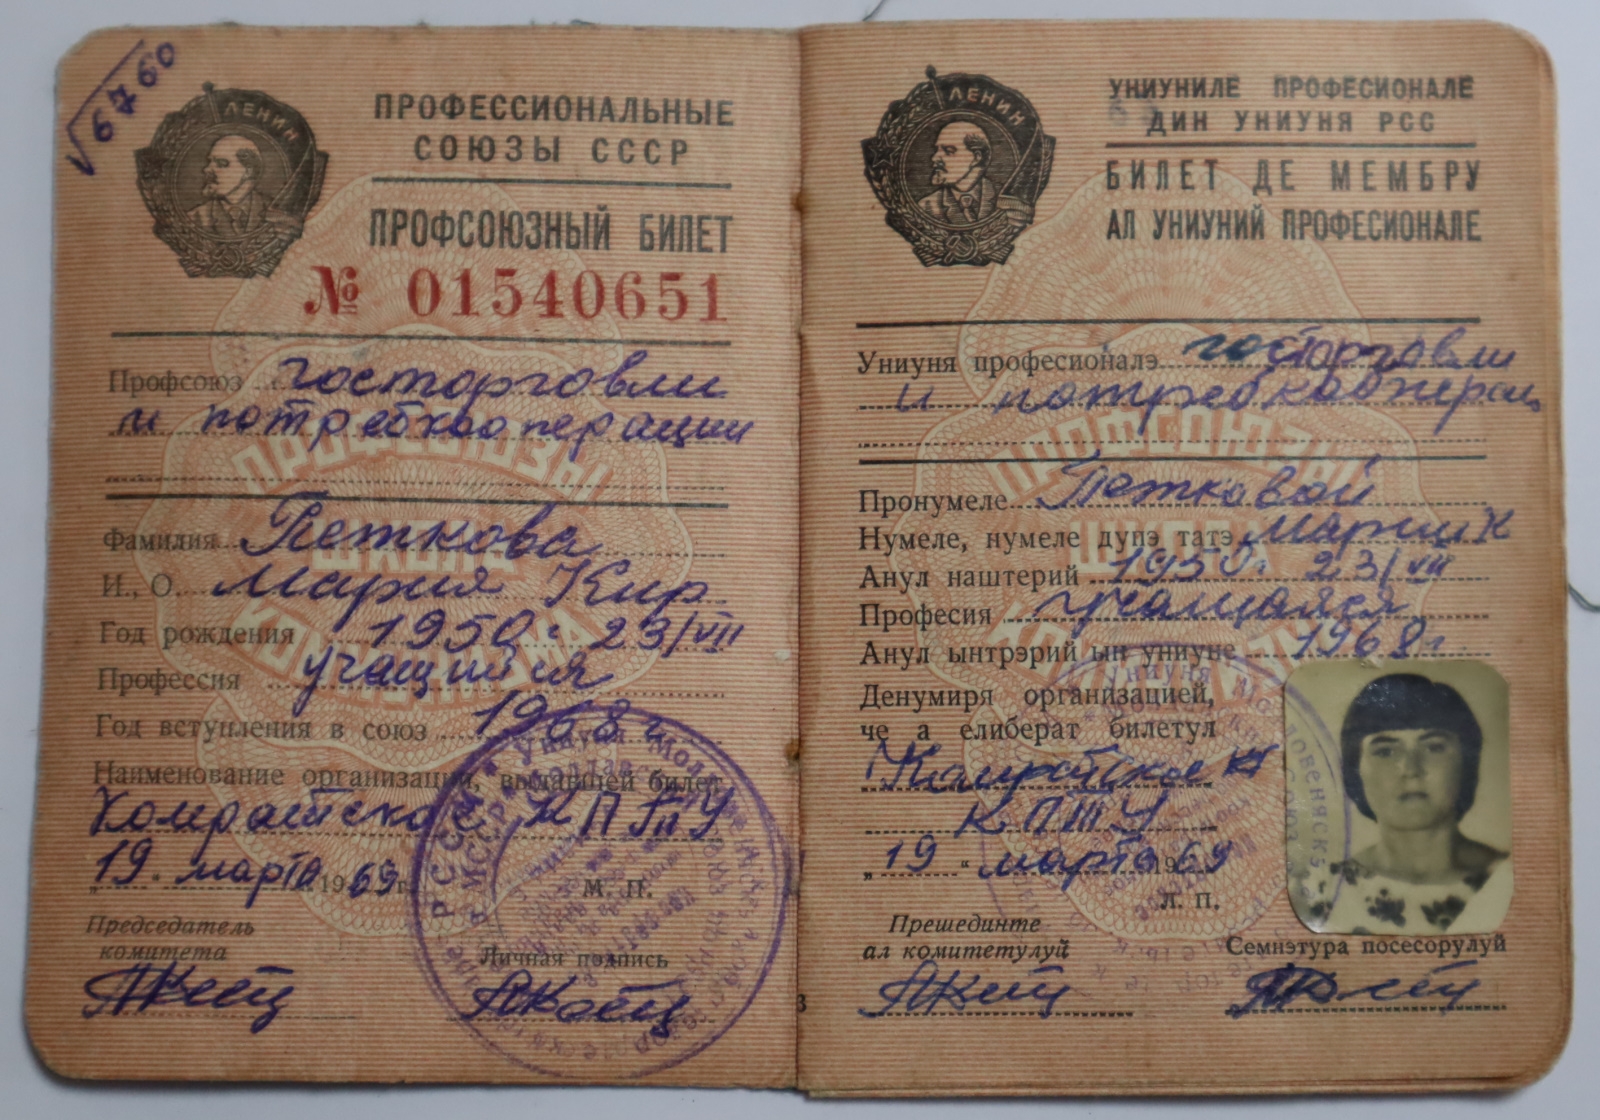 √6760
ЛЕНИН
ПРОФЕССИОНАЛЬНЫЕ
СОЮЗЫ СССР
ПРОФСОЮЗНЫЙ БИЛЕТ
№ 01540651
Профсоюз госторговли
и потребкооперации
ПРОФСОЮЗЫ
ШКОЛА
КОММУНИЗМА
Фамилия Петкова
И., О. Мария Кир.
Год рождения 1950г. 23/VII
Профессия учащийся
Год вступления в союз 1968 г.
Наименование организации, выдавшей билет
Комратское КПТУ
„19“ марта 1969 г.
М. П.
Председатель
комитета
Личная подпись
ЛЕНИН
УНИУНИЛЕ ПРОФЕСИОНАЛЕ
ДИН УНИУНЯ РСС
БИЛЕТ ДЕ МЕМБРУ
АЛ УНИУНИЙ ПРОФЕСИОНАЛЕ
Униуня професионалэ госторговли
и потребкооперац
ПРОФСОЮЗЫ
ШКОЛА
Пронумеле Петковой
Нумеле, нумеле дупэ татэ Марии К
Анул наштерий 1950г. 23/VII
Професия учащаяся
Анул ынтрэрий ын униуне 1968г.
Денумиря организацией,
че а елиберат билетул
Комратское
КПТУ
„19“ марта 1969
Л. П.
Прешединте
ал комитетулуй
Семнэтура посесорулуй
3